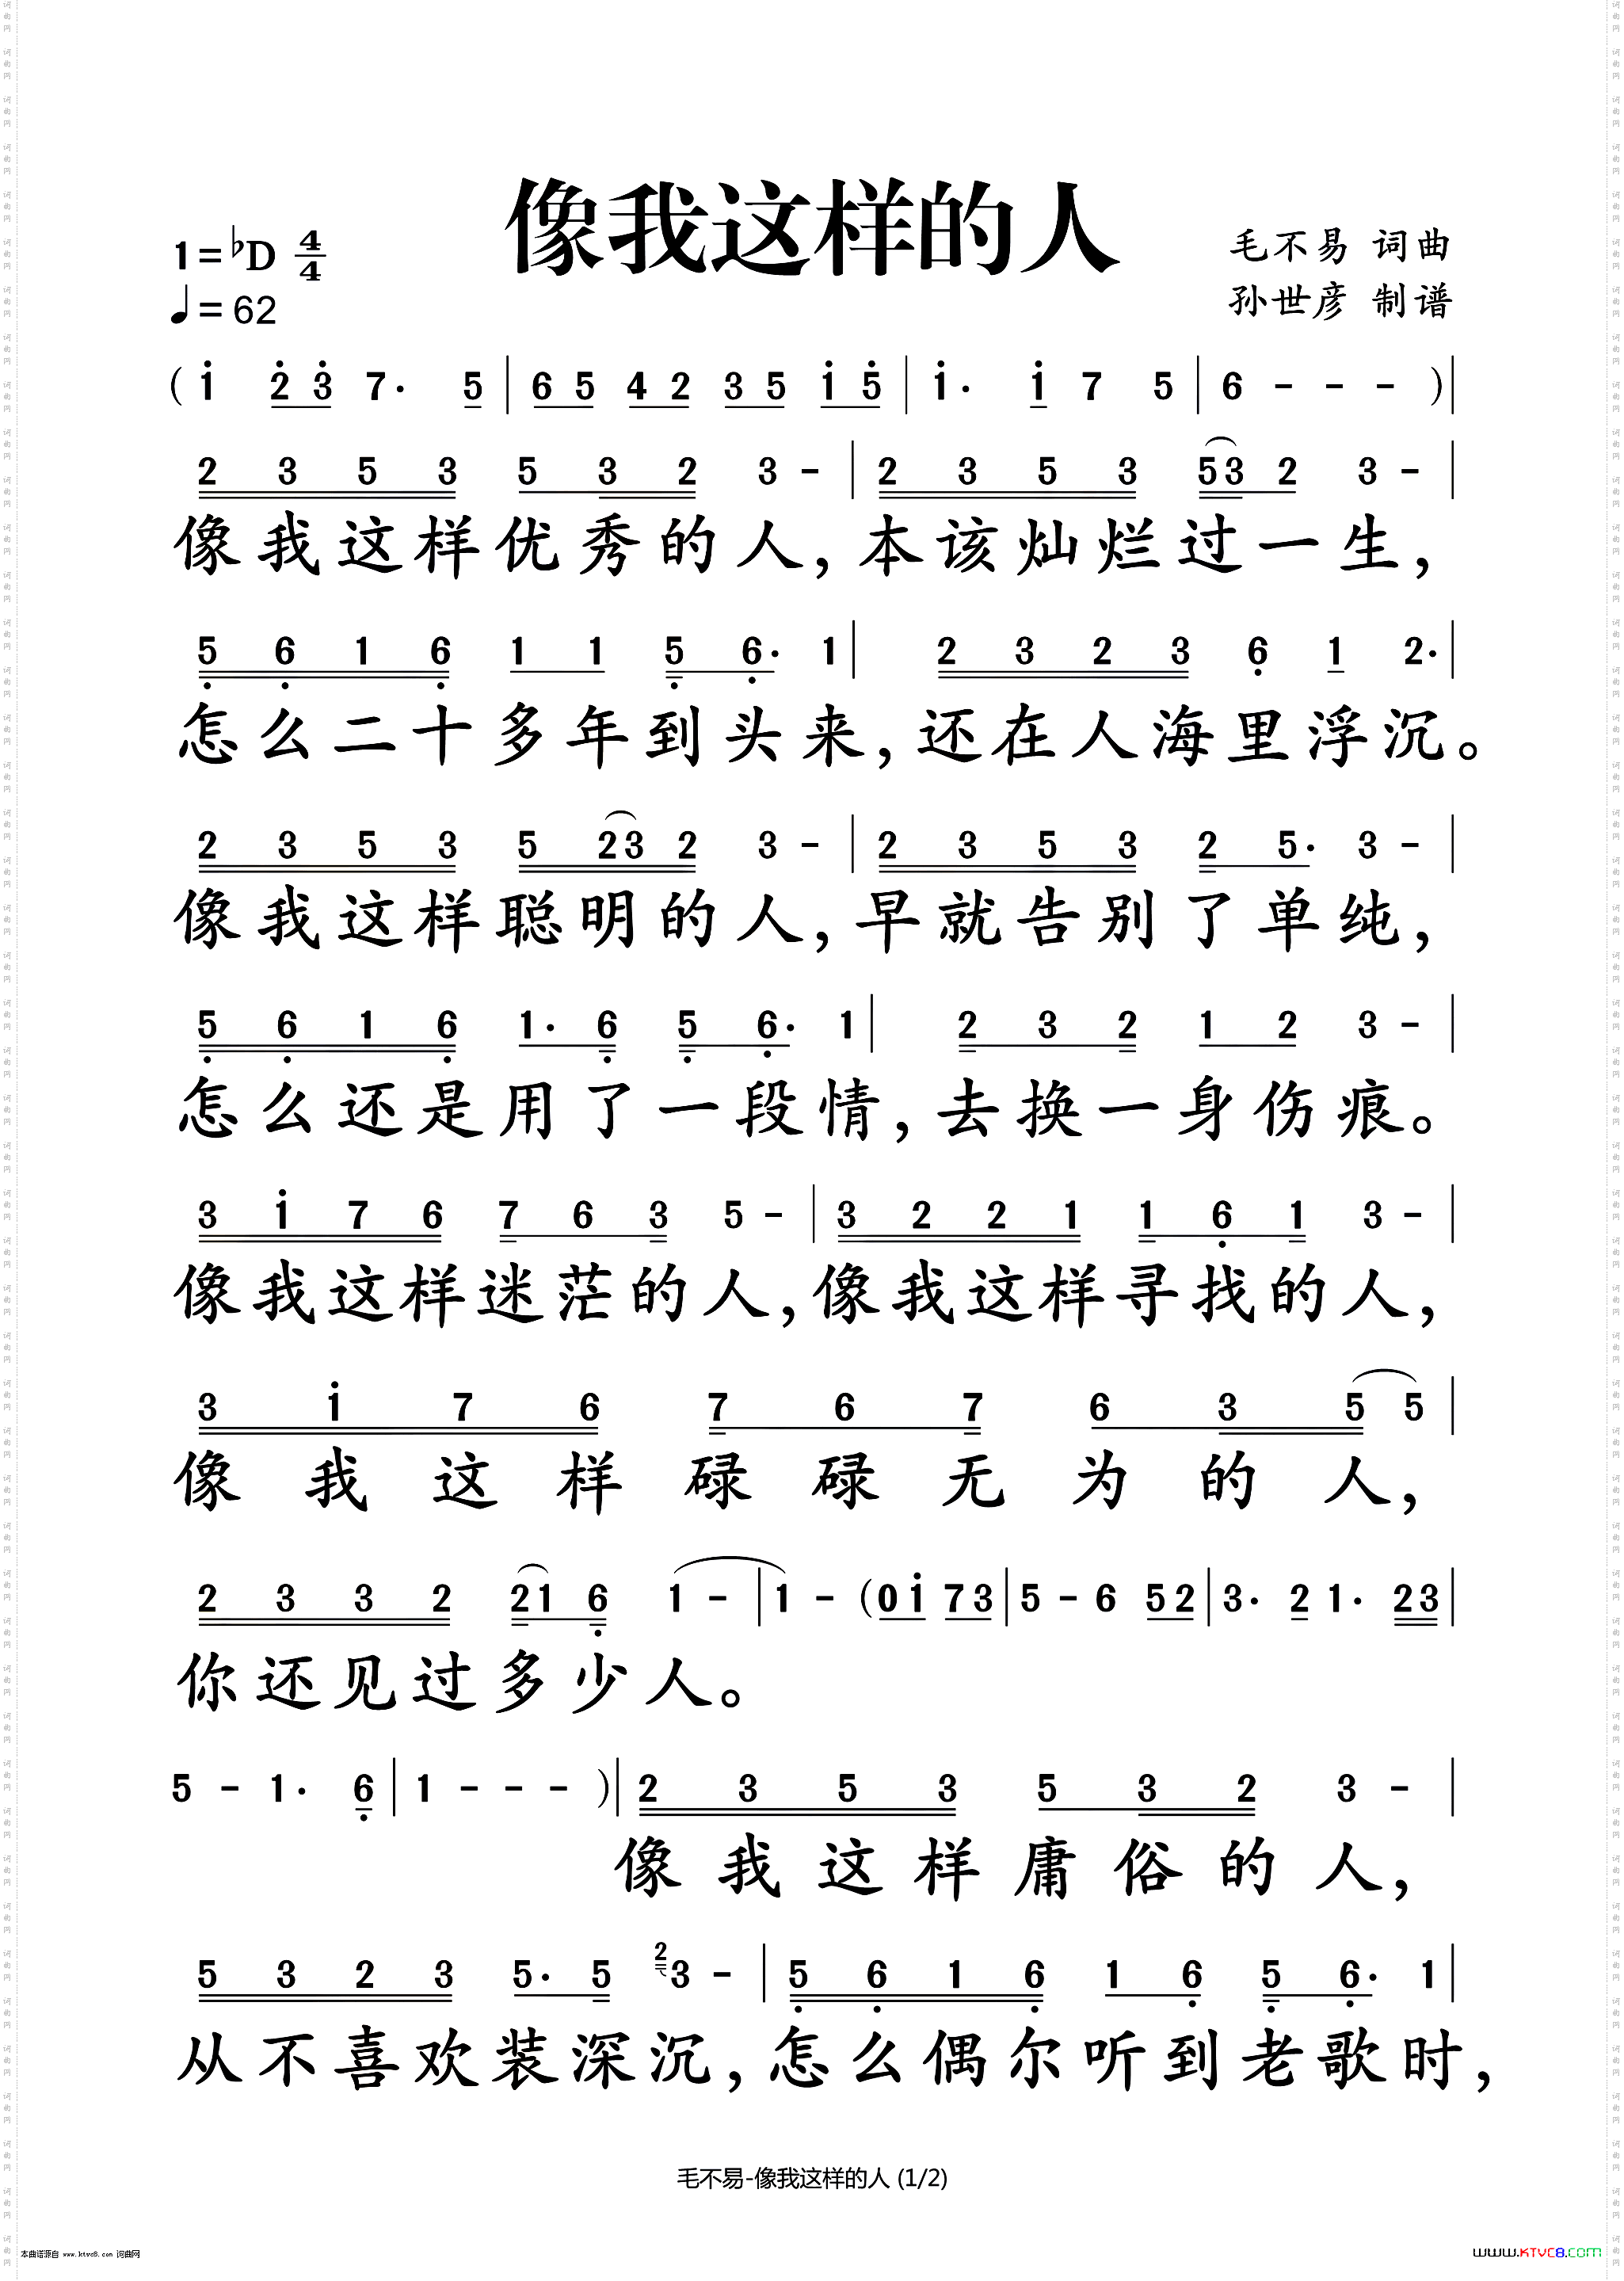 像我这样的人
1=♭D 4/4
♩=62
毛不易 词曲
孙世彦 制谱
( i̇ 2̇ 3̇ 7· 5 | 6 5 4 2 3 5 i̇ 5̇ | i̇· i̇ 7 5 | 6 - - - ) |
2 3 5 3 5 3 2 3 - | 2 3 5 3 5 3 2 3 - |
像我这样优秀的人，本该灿烂过一生，
5̣ 6̣ 1 6̣ 1 1 5̣ 6̣· 1 | 2 3 2 3 6̣ 1 2· |
怎么二十多年到头来，还在人海里浮沉。
2 3 5 3 5 2 3 2 3 - | 2 3 5 3 2 5· 3 - |
像我这样聪明的人，早就告别了单纯，
5̣ 6̣ 1 6̣ 1· 6̣ 5̣ 6̣· 1 | 2 3 2 1 2 3 - |
怎么还是用了一段情，去换一身伤痕。
3 i̇ 7 6 7 6 3 5 - | 3 2 2 1 1 6̣ 1 3 - |
像我这样迷茫的人，像我这样寻找的人，
3 i̇ 7 6 7 6 7 6 3 5 5 |
像我这样碌碌无为的人，
2 3 3 2 2 1 6̣ 1 - | 1 - ( 0 i̇ 7 3 | 5 - 6 5 2 | 3· 2 1· 2 3 |
你还见过多少人。
5 - 1· 6̣ | 1 - - - ) | 2 3 5 3 5 3 2 3 - |
像我这样庸俗的人，
5 3 2 3 5· 5 2 3 - | 5̣ 6̣ 1 6̣ 1 6̣ 5̣ 6̣· 1 |
从不喜欢装深沉，怎么偶尔听到老歌时，
毛不易-像我这样的人 (1/2)
本曲谱源自 www.ktvc8.com 词曲网
www.KTVC8.com